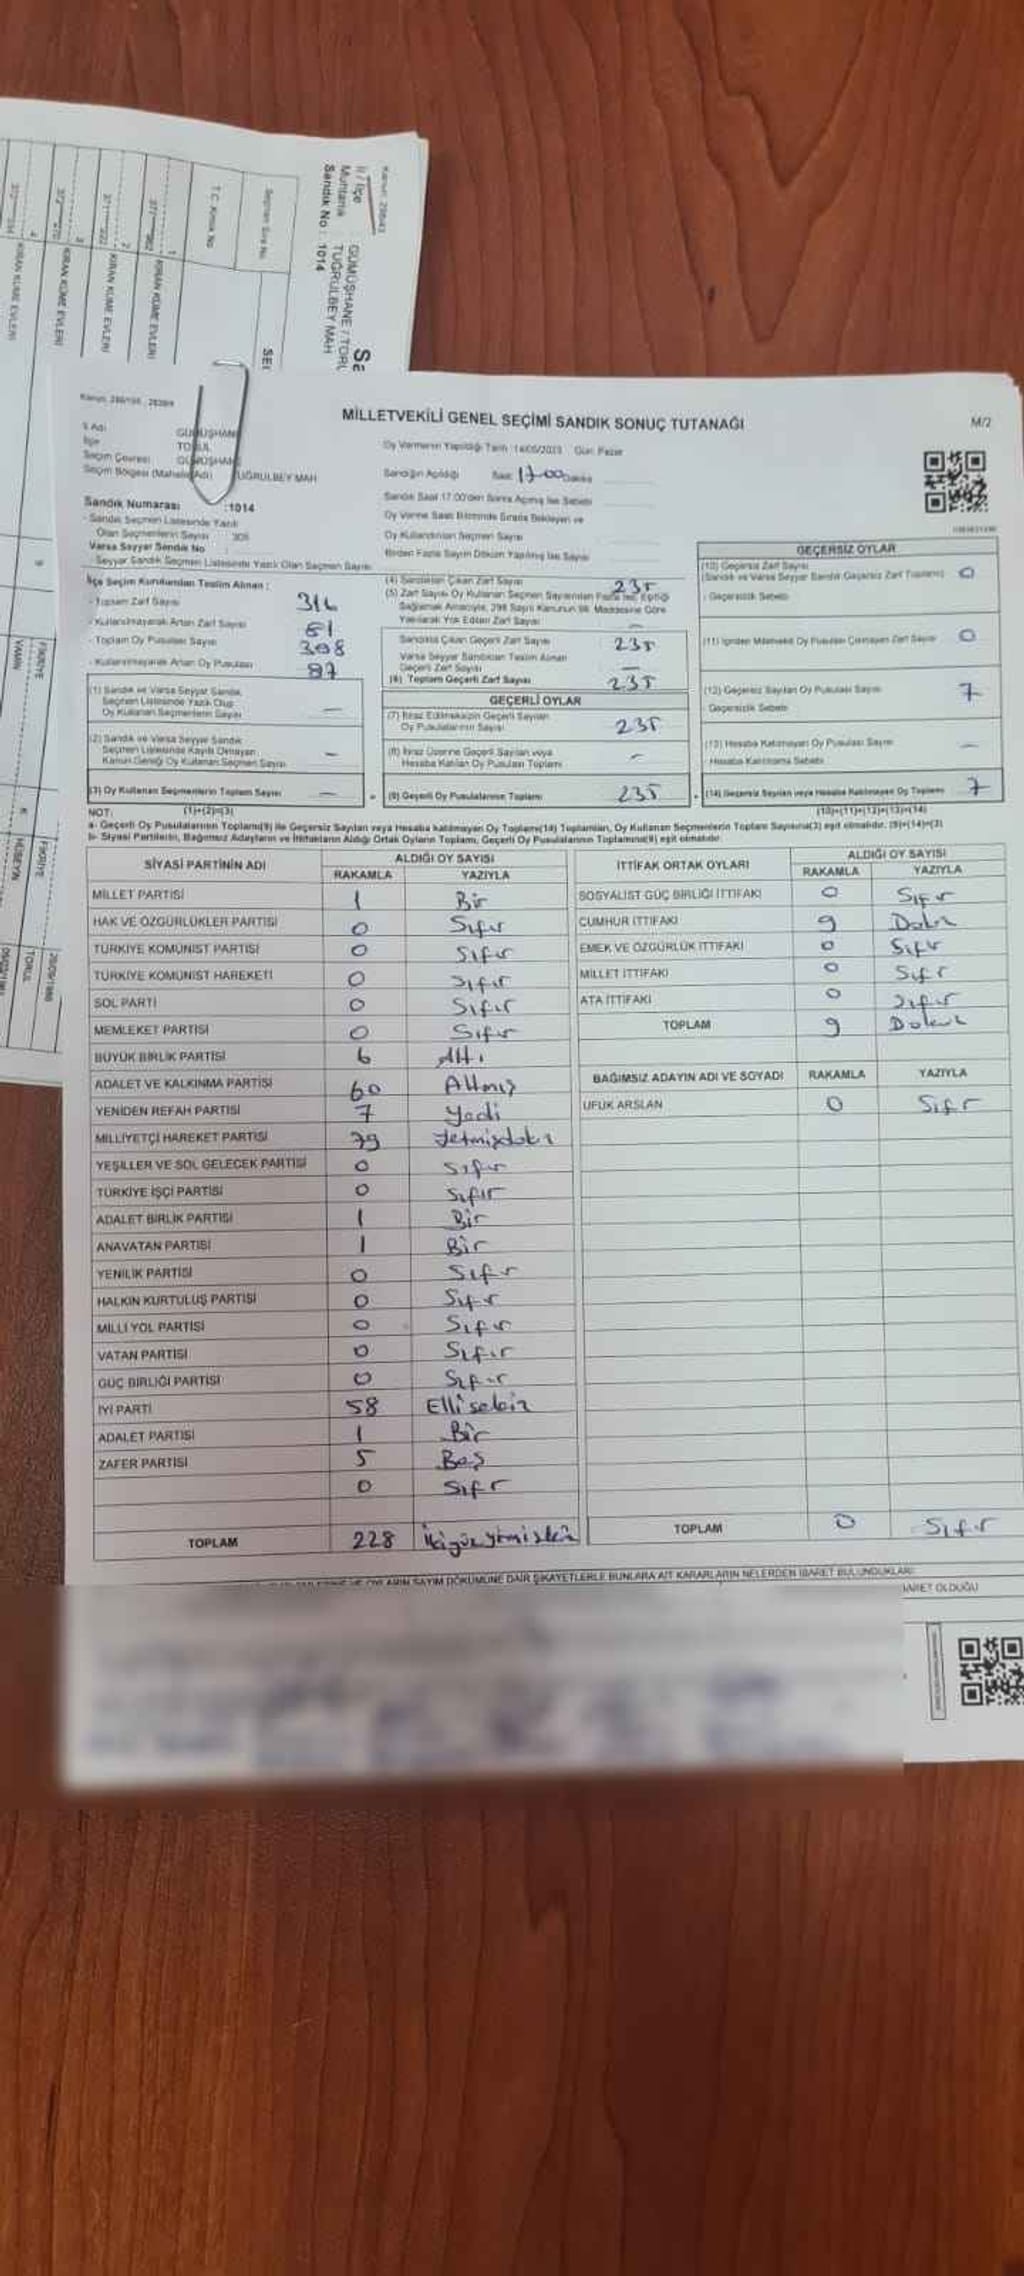 Sa
GÜMÜŞHANE / TORU
İl / İlçe
Muhtarlık : TUĞRULBEY MAH
Sandık No : 1014
Seçmen Sıra No
T.C. Kimlik No
KIRAN KÜME EVLERİ
KIRAN KÜME EVLERİ
KIRAN KÜME EVLERİ
KIRAN KÜME EVLERİ
MİLLETVEKİLİ GENEL SEÇİMİ SANDIK SONUÇ TUTANAĞI
M/2
İl Adı GÜMÜŞHANE
İlçe TORUL
Seçim Çevresi GÜMÜŞHANE
Seçim Bölgesi (Mahalle Adı) TUĞRULBEY MAH
Sandık Numarası :1014
- Sandık Seçmen Listesinde Yazılı
Olan Seçmenlerin Sayısı
Varsa Seyyar Sandık No
- Seyyar Sandık Seçmen Listesinde Yazılı Olan Seçmen Sayısı
Oy Vermenin Yapıldığı Tarih :14/05/2023 Gün: Pazar
Sandığın Açıldığı Saat: 17.00 Dakika
Sandık Saat 17.00'den Sonra Açılmış İse Sebebi
Oy Verme Saati Bitiminde Sırada Bekleyen ve
Oy Kullandırılan Seçmen Sayısı
Birden Fazla Sayım Döküm Yapılmış İse Sayısı
İlçe Seçim Kurulundan Teslim Alınan :
- Toplam Zarf Sayısı 316
- Kullanılmayarak Artan Zarf Sayısı 81
- Toplam Oy Pusulası Sayısı
- Kullanılmayarak Artan Oy Pusulası
(1) Sandık ve Varsa Seyyar Sandık
Seçmen Listesinde Yazılı Olup
Oy Kullanan Seçmenlerin Sayısı –
(2) Sandık ve Varsa Seyyar Sandık
Seçmen Listesinde Kayıtlı Olmayan
Kanun Gereği Oy Kullanan Seçmen Sayısı –
(3) Oy Kullanan Seçmenlerin Toplam Sayısı –
(4) Sandıktan Çıkan Zarf Sayısı 235
(5) Zarf Sayısı Oy Kullanan Seçmen Sayısından Fazla İse, Eşitliği
Sağlamak Amacıyla, 298 Sayılı Kanunun 98. Maddesine Göre
Yakılarak Yok Edilen Zarf Sayısı –
Sandıkta Çıkan Geçerli Zarf Sayısı 235
Varsa Seyyar Sandıktan Teslim Alınan
Geçerli Zarf Sayısı –
(6) Toplam Geçerli Zarf Sayısı 235
GEÇERLİ OYLAR
(7) İtiraz Edilmeksizin Geçerli Sayılan
Oy Pusulalarının Sayısı 235
(8) İtiraz Üzerine Geçerli Sayılan veya
Hesaba Katılan Oy Pusulası Toplamı –
(9) Geçerli Oy Pusulalarının Toplamı 235
GEÇERSİZ OYLAR
(10) Geçersiz Zarf Sayısı
(Sandık ve Varsa Seyyar Sandık Geçersiz Zarf Toplamı) 0
- Geçersizlik Sebebi
(11) İçinden Milletvekili Oy Pusulası Çıkmayan Zarf Sayısı 0
(12) Geçersiz Sayılan Oy Pusulası Sayısı 7
Geçersizlik Sebebi
(13) Hesaba Katılmayan Oy Pusulası Sayısı –
- Hesaba Katılmama Sebebi
(14) Geçersiz Sayılan veya Hesaba Katılmayan Oy Toplamı 7
NOT: (1)+(2)=(3) (10)+(11)+(12)+(13)=(14)
a- Geçerli Oy Pusulalarının Toplamı(9) ile Geçersiz Sayılan veya Hesaba katılmayan Oy Toplamı(14) Toplamları, Oy Kullanan Seçmenlerin Toplam Sayısına(3) eşit olmalıdır. (9)+(14)=(3)
b- Siyasi Partilerin, Bağımsız Adayların ve İttifakların Aldığı Ortak Oyların Toplamı, Geçerli Oy Pusulalarının Toplamına(9) eşit olmalıdır.
SİYASİ PARTİNİN ADI ALDIĞI OY SAYISI
RAKAMLA YAZIYLA
MİLLET PARTİSİ 1 Bir
HAK VE ÖZGÜRLÜKLER PARTİSİ 0 Sıfır
TÜRKİYE KOMÜNİST PARTİSİ 0 Sıfır
TÜRKİYE KOMÜNİST HAREKETİ 0 Sıfır
SOL PARTİ 0 Sıfır
MEMLEKET PARTİSİ 0 Sıfır
BÜYÜK BİRLİK PARTİSİ 6 Altı
ADALET VE KALKINMA PARTİSİ 60 Altmış
YENİDEN REFAH PARTİSİ 7 Yedi
MİLLİYETÇİ HAREKET PARTİSİ 79 Yetmişdokuz
YEŞİLLER VE SOL GELECEK PARTİSİ 0 Sıfır
TÜRKİYE İŞÇİ PARTİSİ 0 Sıfır
ADALET BİRLİK PARTİSİ 1 Bir
ANAVATAN PARTİSİ 1 Bir
YENİLİK PARTİSİ 0 Sıfır
HALKIN KURTULUŞ PARTİSİ 0 Sıfır
MİLLİ YOL PARTİSİ 0 Sıfır
VATAN PARTİSİ 0 Sıfır
GÜÇ BİRLİĞİ PARTİSİ 0 Sıfır
İYİ PARTİ 58 Ellisekiz
ADALET PARTİSİ 1 Bir
ZAFER PARTİSİ 5 Beş
0 Sıfır
TOPLAM 228
İTTİFAK ORTAK OYLARI ALDIĞI OY SAYISI
RAKAMLA YAZIYLA
SOSYALİST GÜÇ BİRLİĞİ İTTİFAKI 0 Sıfır
CUMHUR İTTİFAKI 9 Dokuz
EMEK VE ÖZGÜRLÜK İTTİFAKI 0 Sıfır
MİLLET İTTİFAKI 0 Sıfır
ATA İTTİFAKI 0 Sıfır
TOPLAM 9 Dokuz
BAĞIMSIZ ADAYIN ADI VE SOYADI RAKAMLA YAZIYLA
UFUK ARSLAN 0 Sıfır
TOPLAM 0 Sıfır
OYLARIN SAYIM DÖKÜMÜNE DAİR ŞİKAYETLERLE BUNLARA AİT KARARLARIN NELERDEN İBARET BULUNDUKLARI
İBARET OLDUĞU